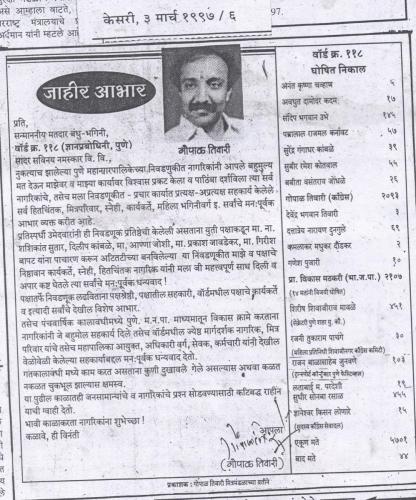 केसरी, ३ मार्च १९९७ / ६
97.
जाहीर आभार
गोपाळ तिवारी
प्रति,
सन्माननीय मतदार बंधु-भगिनी,
वॉर्ड क्र. ११८ (ज्ञानप्रबोधिनी, पुणे)
सादर सविनय नमस्कार वि. वि.,
नुकत्याच झालेल्या पुणे महानगरपालिकेच्या निवडणुकीत नागरिकांनी आपले बहुमुल्य
मत देऊन माझेवर व माझ्या कार्यावर विश्वास प्रकट केला व पाठिंबा दर्शविला त्या सर्व
नागरिकांचे, तसेच मला निवडणूकीत - प्रचार कार्यात प्रत्यक्ष-अप्रत्यक्ष सहकार्य केलेले
सर्व हितचिंतक, मित्रपरिवार, स्नेही, कार्यकर्ते, महिला भगिनीवर्ग इ. सर्वांचे मनःपूर्वक
आभार व्यक्त करीत आहे.
प्रतिस्पर्धी उमेदवारांनी ही निवडणूक प्रतिष्ठेची केलेली असताना युती पक्षाकडून मा. ना.
शशिकांत सुतार, दिलीप कांबळे, मा. आण्णा जोशी, मा. प्रकाश जावडेकर, मा. गिरीश
बापट यांना पाचारण करून अटितटीच्या बनविलेल्या या निवडणूकीत माझे व पक्षाचे
निष्ठावान कार्यकर्ते, स्नेही, हितचिंतक नागरिक यांनी मला जी महत्त्वपूर्ण साथ दिली व
अपार कष्ट घेतले त्या सर्वांचे मनःपूर्वक धन्यवाद !
पक्षातर्फे निवडणूक लढविताना पक्षश्रेष्ठी, पक्षातील सहकारी, वॉर्डमधील पक्षाचे कार्यकर्ते
व इत्यादी सर्वांचे देखील विशेष आभार.
तसेच पंचवार्षिक कालावधीमध्ये पुणे. म.न.पा. माध्यमातून विकास कामे करताना
नागरिकांनी जे बहुमोल सहकार्य दिले तसेच वॉर्डमधील ज्येष्ठ मार्गदर्शक नागरिक, मित्र
परिवार यांचे तसेच महापालिका आयुक्त, अधिकारी वर्ग, सेवक, कर्मचारी यांनी देखील
वेळोवेळी केलेल्या सहकार्याबद्दल मनःपूर्वक धन्यवाद देतो.
गतकालावधी मध्ये काम करत असताना कुणी दुखावले गेले असल्यास अथवा कळत
नकळत चुकभूल झाल्यास क्षमस्व.
या पुढील काळातही जनसामान्यांचे व नागरिकांचे प्रश्न सोडवण्यासाठी कटिबद्ध राहीन
याची ग्वाही देतो.
भावी काळाकरता नागरिकांना शुभेच्छा !
कळावे, ही विनंती
आपला
(गोपाळ तिवारी)
वॉर्ड क्र. ११८
घोषित निकाल
अनंत कृष्णा चव्हाण ५
अवधुत दामोदर कदम १७
संदिप भगवान उभे १४५
पन्नालाल राजमल कर्नावट ५७
सुरेंद्र गंगाधर कांबळे ३९
सुबीर रमेश कोतवाल ५५
बबीता वसंतराव जोंधळे २६
गोपाळ तिवारी (काँग्रेस) २०९३
देवेंद्र भगवान तिवारी ३
दत्तात्रेय नारायण दुनगुले ६९
कमलाकर मधुकर दौंडकर २
गणेश पुजारी १०
प्रा. विकास मठकरी (भा.ज.पा.) २१०७
(१४ मतांनी विजयी घोषित)
शिरीष शिवाजीराव मावळे ४५१
रजनी तुकाराम पाचंगे ३०
राजन बाळासाहेब जुनवणे १०३
लताबाई म. परदेशी १९
सुधीर सोनबा रसाळ ४५५
ज्ञानेश्वर किसन लोणारे १५
एकूण मते ५७०१
बाद मते ४४
प्रकाशक : गोपाळ तिवारी मित्रमंडळाच्या वतीने